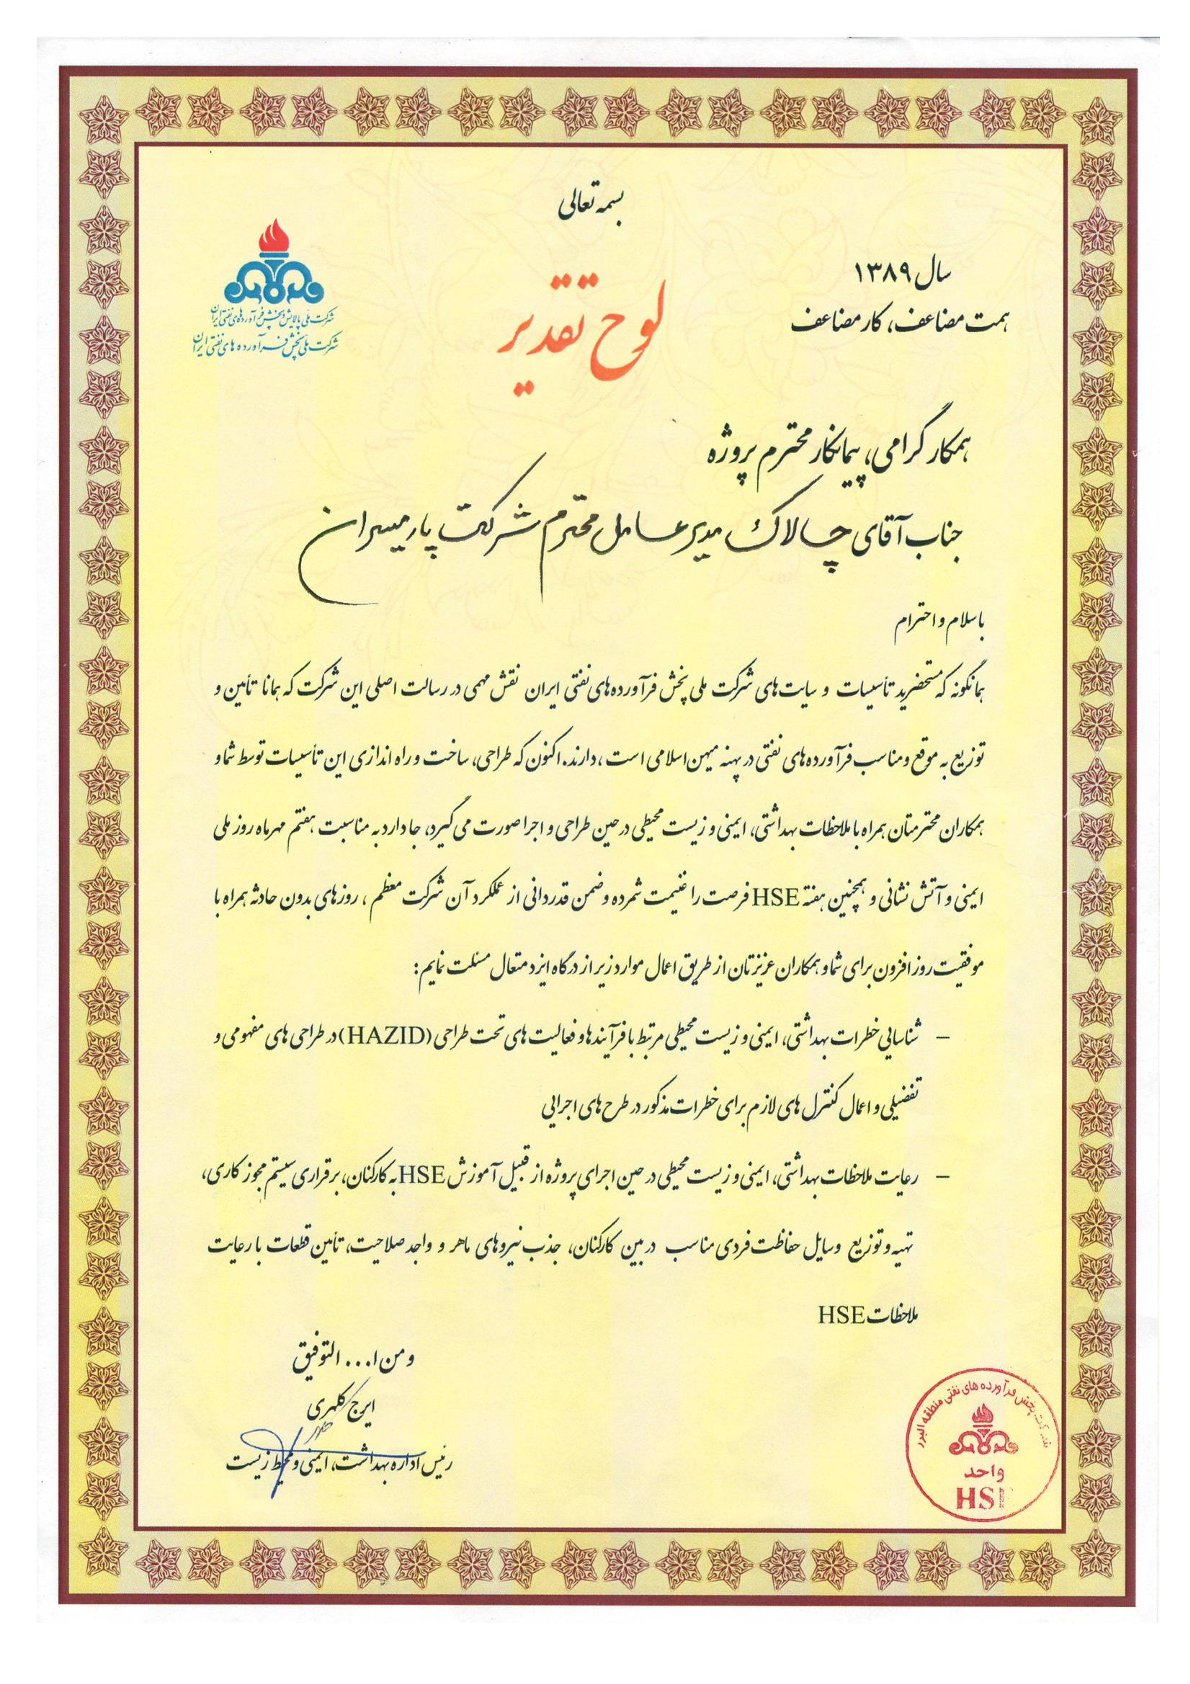 بسمه تعالی
سال ۱۳۸۹
همت مضاعف، کار مضاعف
لوح تقدیر
شرکت ملی پالایش و پخش فرآورده های نفتی ایران
شرکت ملی پخش فرآورده های نفتی ایران
همکار گرامی، پیمانکار محترم پروژه
جناب آقای چالاک مدیر عامل محترم شرکت پارمیسران
با سلام و احترام
همانگونه که مستحضرید تأسیسات و سایت های شرکت ملی پخش فرآورده های نفتی ایران نقش مهمی در رسالت اصلی این شرکت که همانا تأمین و
توزیع به موقع و مناسب فرآورده های نفتی در پهنه میهن اسلامی است، دارند. اکنون که طراحی، ساخت و راه اندازی این تأسیسات توسط شما و
همکاران محترمتان همراه با ملاحظات بهداشتی، ایمنی و زیست محیطی در حین طراحی و اجرا صورت می گیرد، جا دارد به مناسبت هفتم مهرماه روز ملی
ایمنی و آتش نشانی و همچنین هفته HSE فرصت را غنیمت شمرده و ضمن قدردانی از عملکرد آن شرکت معظم ، روزهای بدون حادثه همراه با
موفقیت روز افزون برای شما و همکاران عزیزتان از طریق اعمال موارد زیر از درگاه ایزد متعال مسئلت نمایم:
– شناسایی خطرات بهداشتی، ایمنی و زیست محیطی مرتبط با فرآیندها و فعالیت های تحت طراحی (HAZID) در طراحی های مفهومی و
تفضیلی و اعمال کنترل های لازم برای خطرات مذکور در طرح های اجرایی
– رعایت ملاحظات بهداشتی، ایمنی و زیست محیطی در حین اجرای پروژه از قبیل آموزش HSE به کارکنان، برقراری سیستم مجوز کاری،
تهیه و توزیع وسایل حفاظت فردی مناسب در بین کارکنان، جذب نیروهای ماهر و واجد صلاحیت، تأمین قطعات با رعایت
ملاحظات HSE
و من ا... التوفیق
ایرج کلهری
رئیس اداره بهداشت، ایمنی و محیط زیست
شرکت پخش فرآورده های نفتی منطقه البرز
واحد
HSE